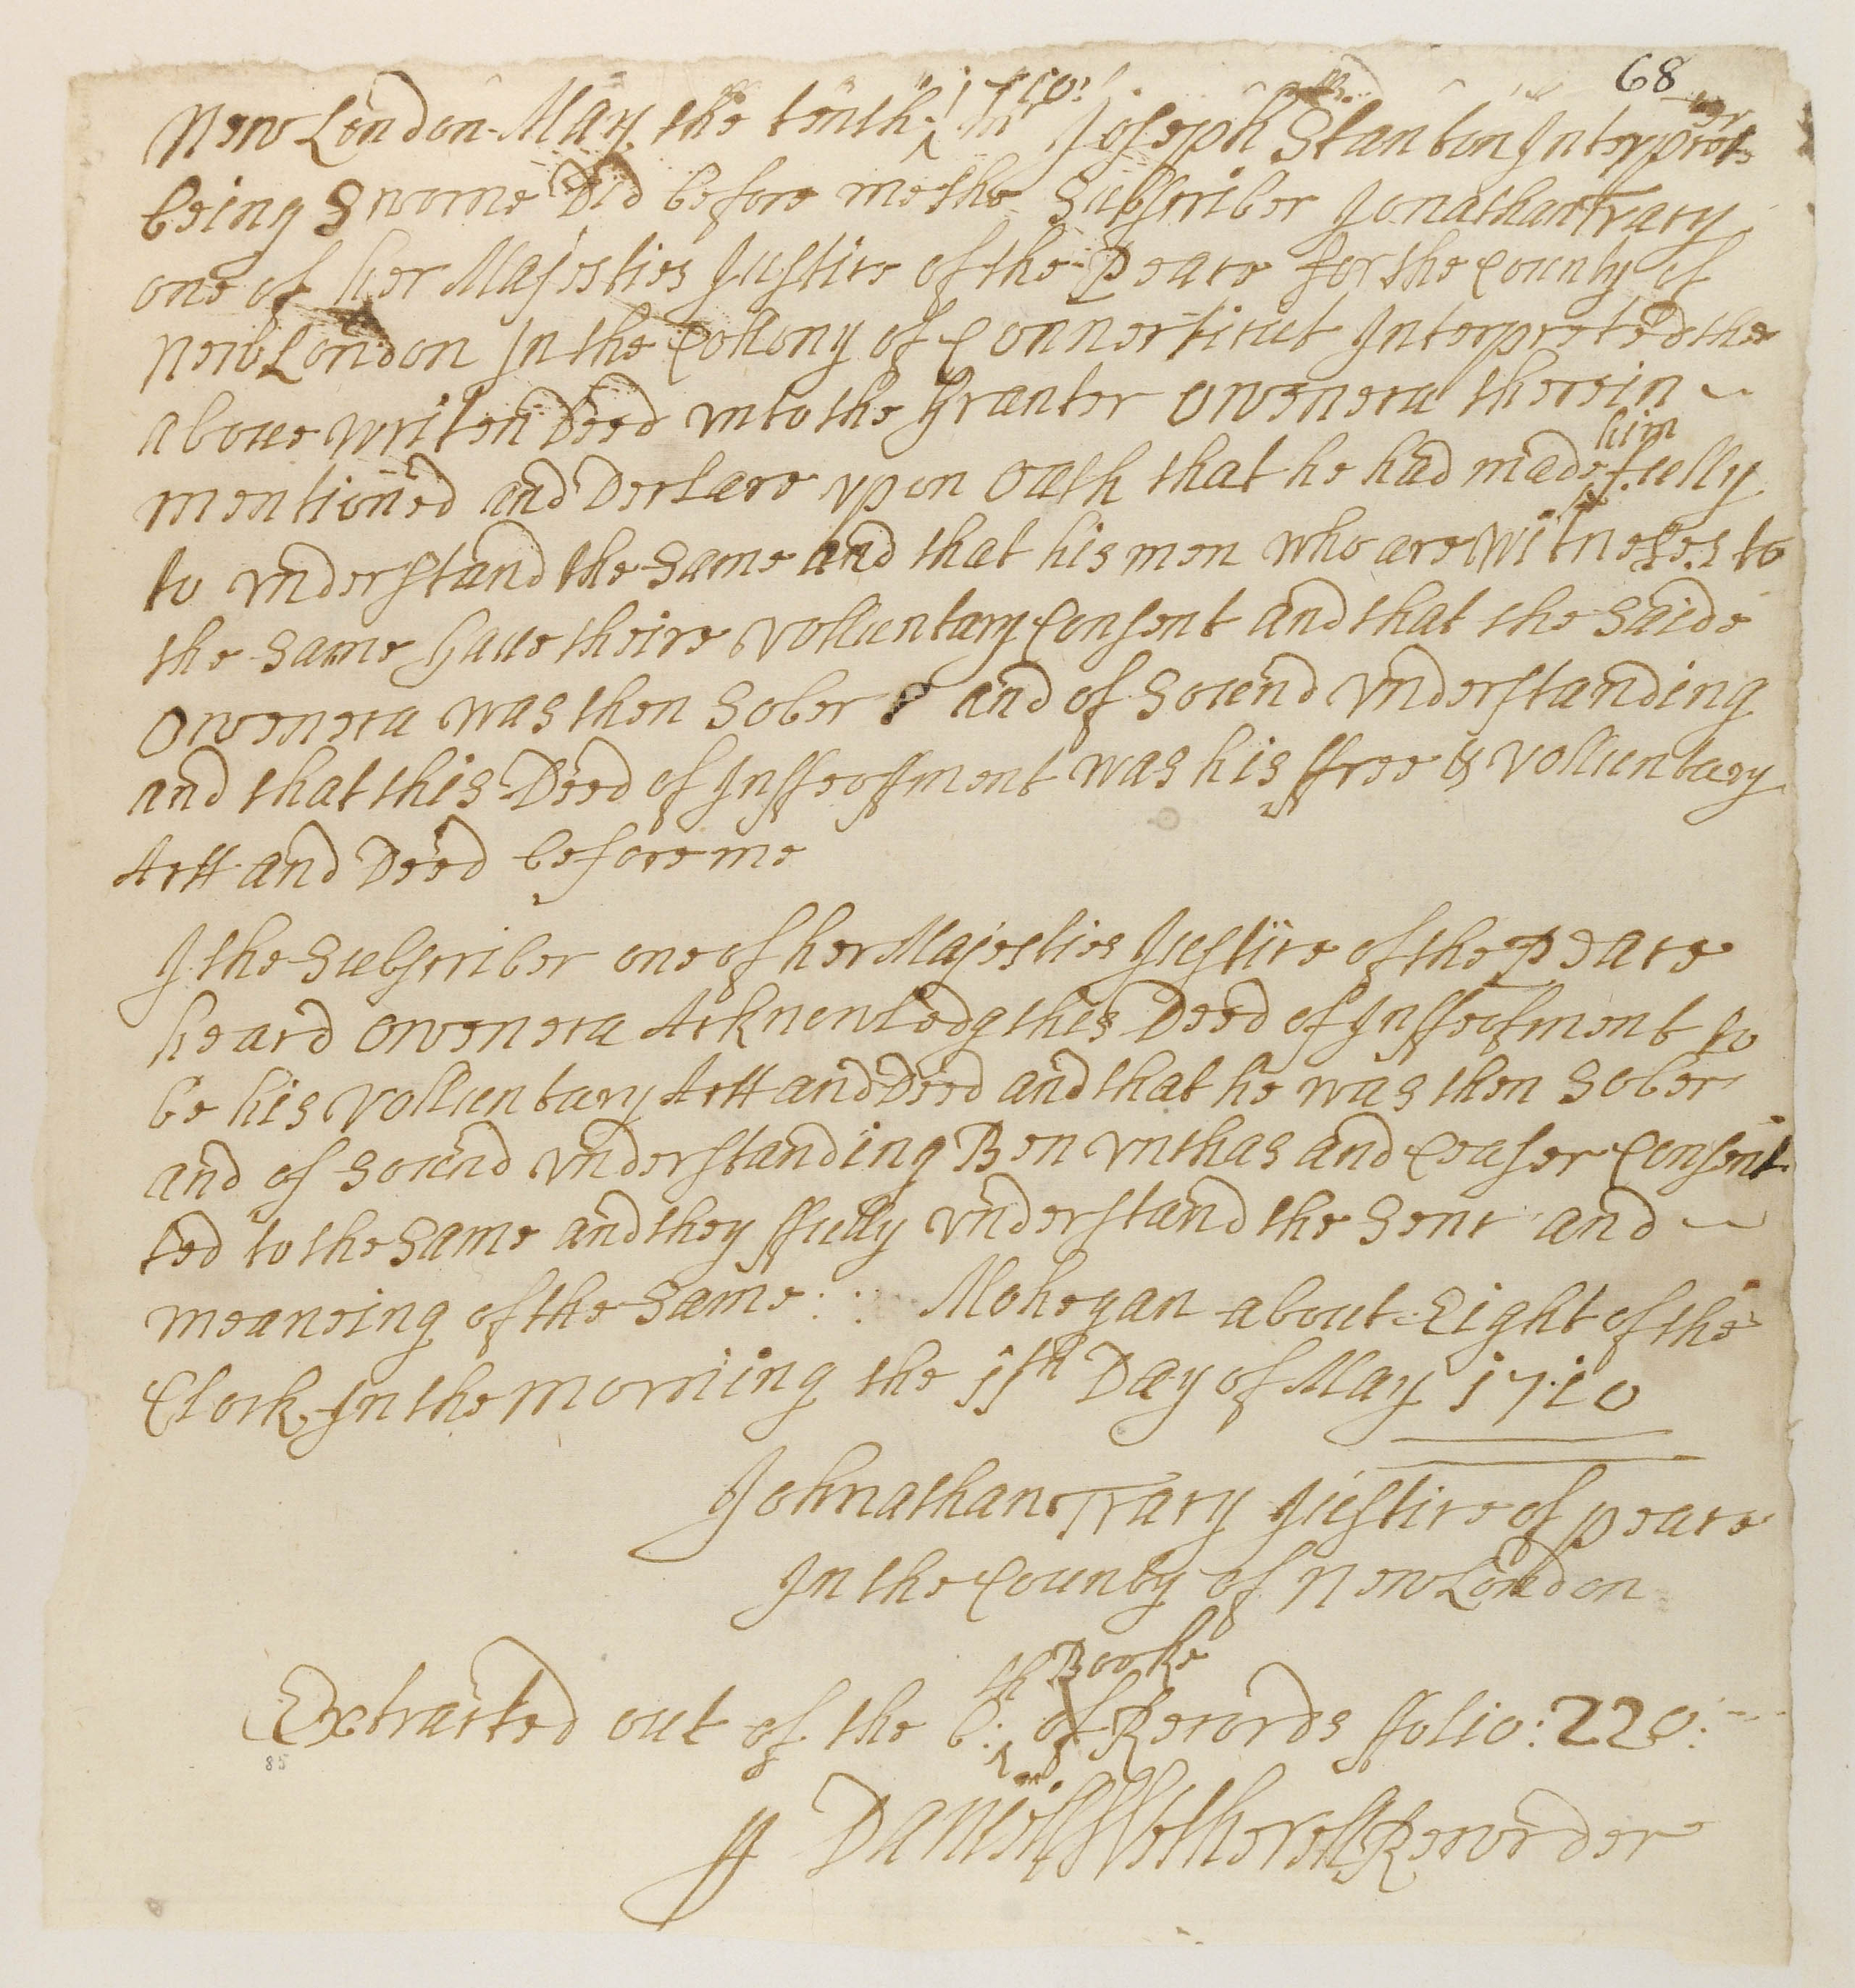 68
New London May the tenth 1710 mr Joseph Stanton Interpreter
being Sworne Did before me the Subscriber Jonathan Tracy
one of her Majesties Justice of the Peace for the County of
New London In the Collony of Connecticut Interpreted the
aboue writen Deed vnto the Granter Oweneca therein ~
mentioned and Declare vpon Oath that he had made him fully
to vnderstand the Same and that his men who are Witneses to
the Same Gaue theire Volluntary Consent and that the Saide
Oweneca was then Sober and of Sound Vnderstanding
and that this Deed of Inffeoffment was his ffree & Volluntary
Actt and Deed before me
I the Subscriber one of her Majesties Justice of the Peace
heard Oweneca Acknowledg this Deed of Inffeofment to
be his Volluntary Actt and Deed and that he was then Sober
and of Sound Vnderstanding Ben Vnchas and Ceaser Consent
ted to the Same and they ffully Vnderstand the Senc and ~
meaneing of the Same :: Mohegan about Eight of the
Clock In the morniing the 11th Day of May 1710
Johnathan Tracy Justice of peace
In the County of New London
Extracted out of the 6:th Booke of Records ffolio: 220:
85
℔ Daniell Wetherell Recorder